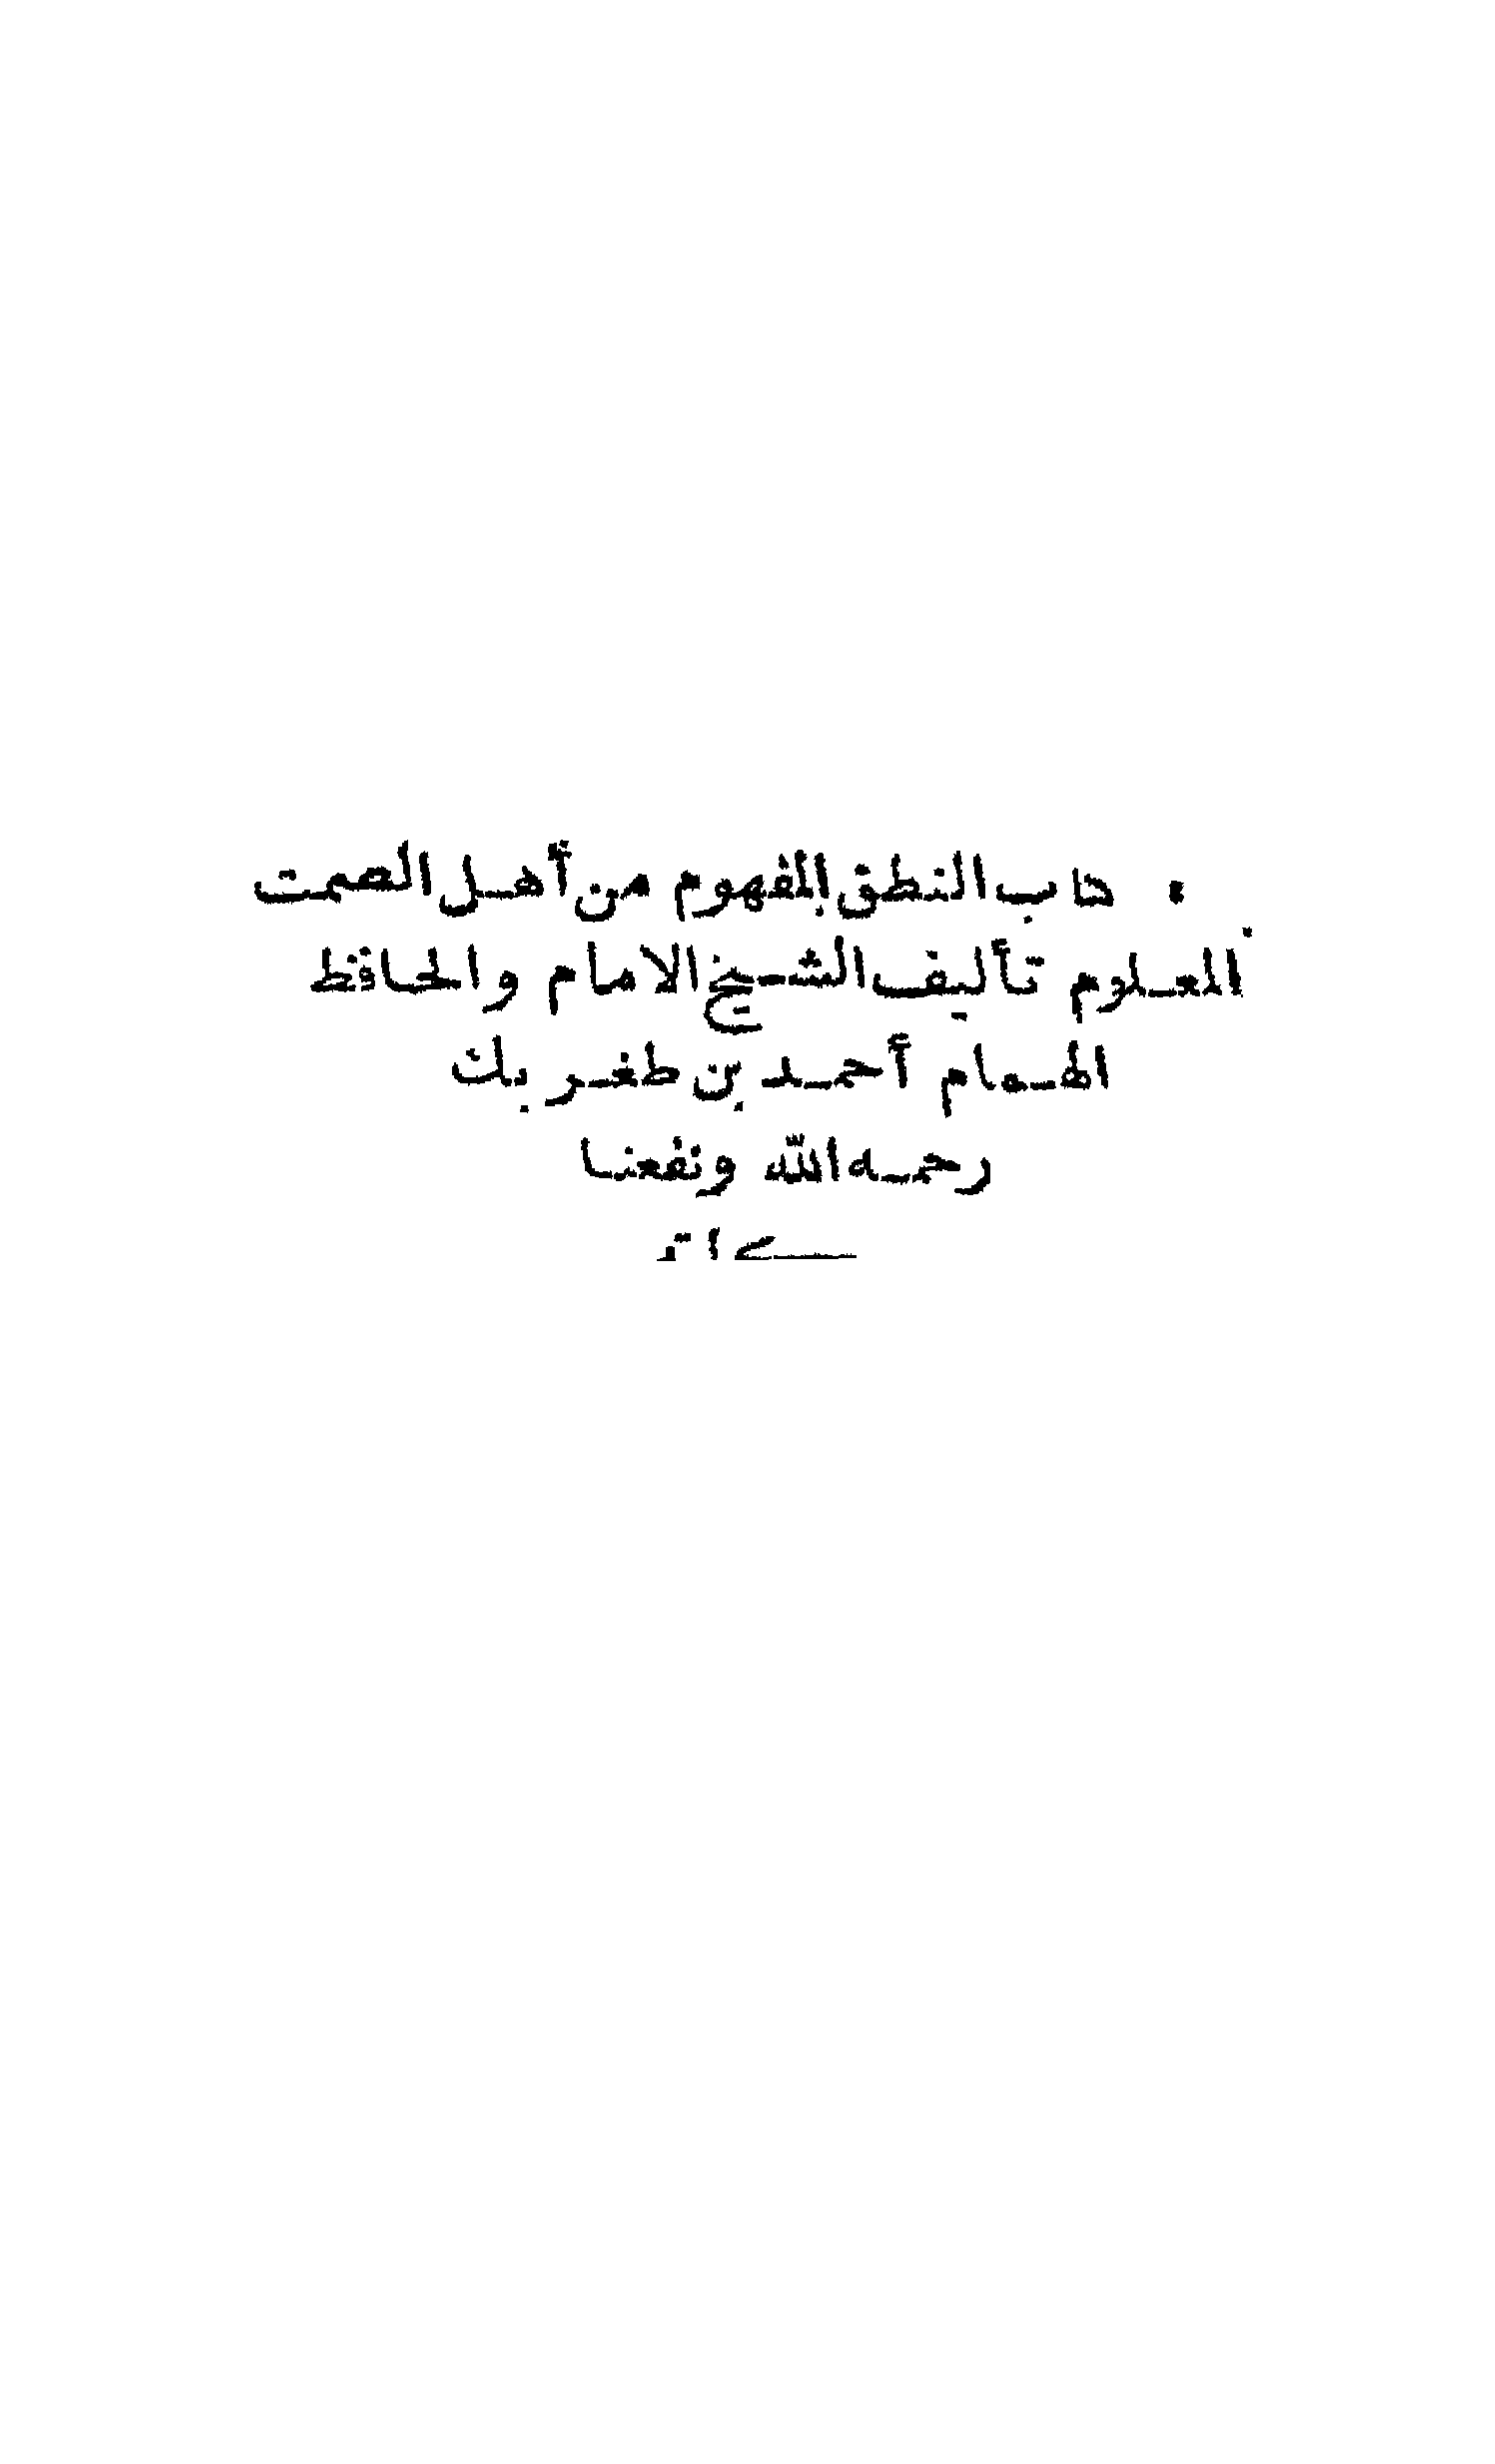 كتاب النطق المفهوم من أهل الصمت
المعلوم تأليف الشيخ الامام والحافظ
الهمام أحمد بن طغر بك
رحمه الله ونفعنا